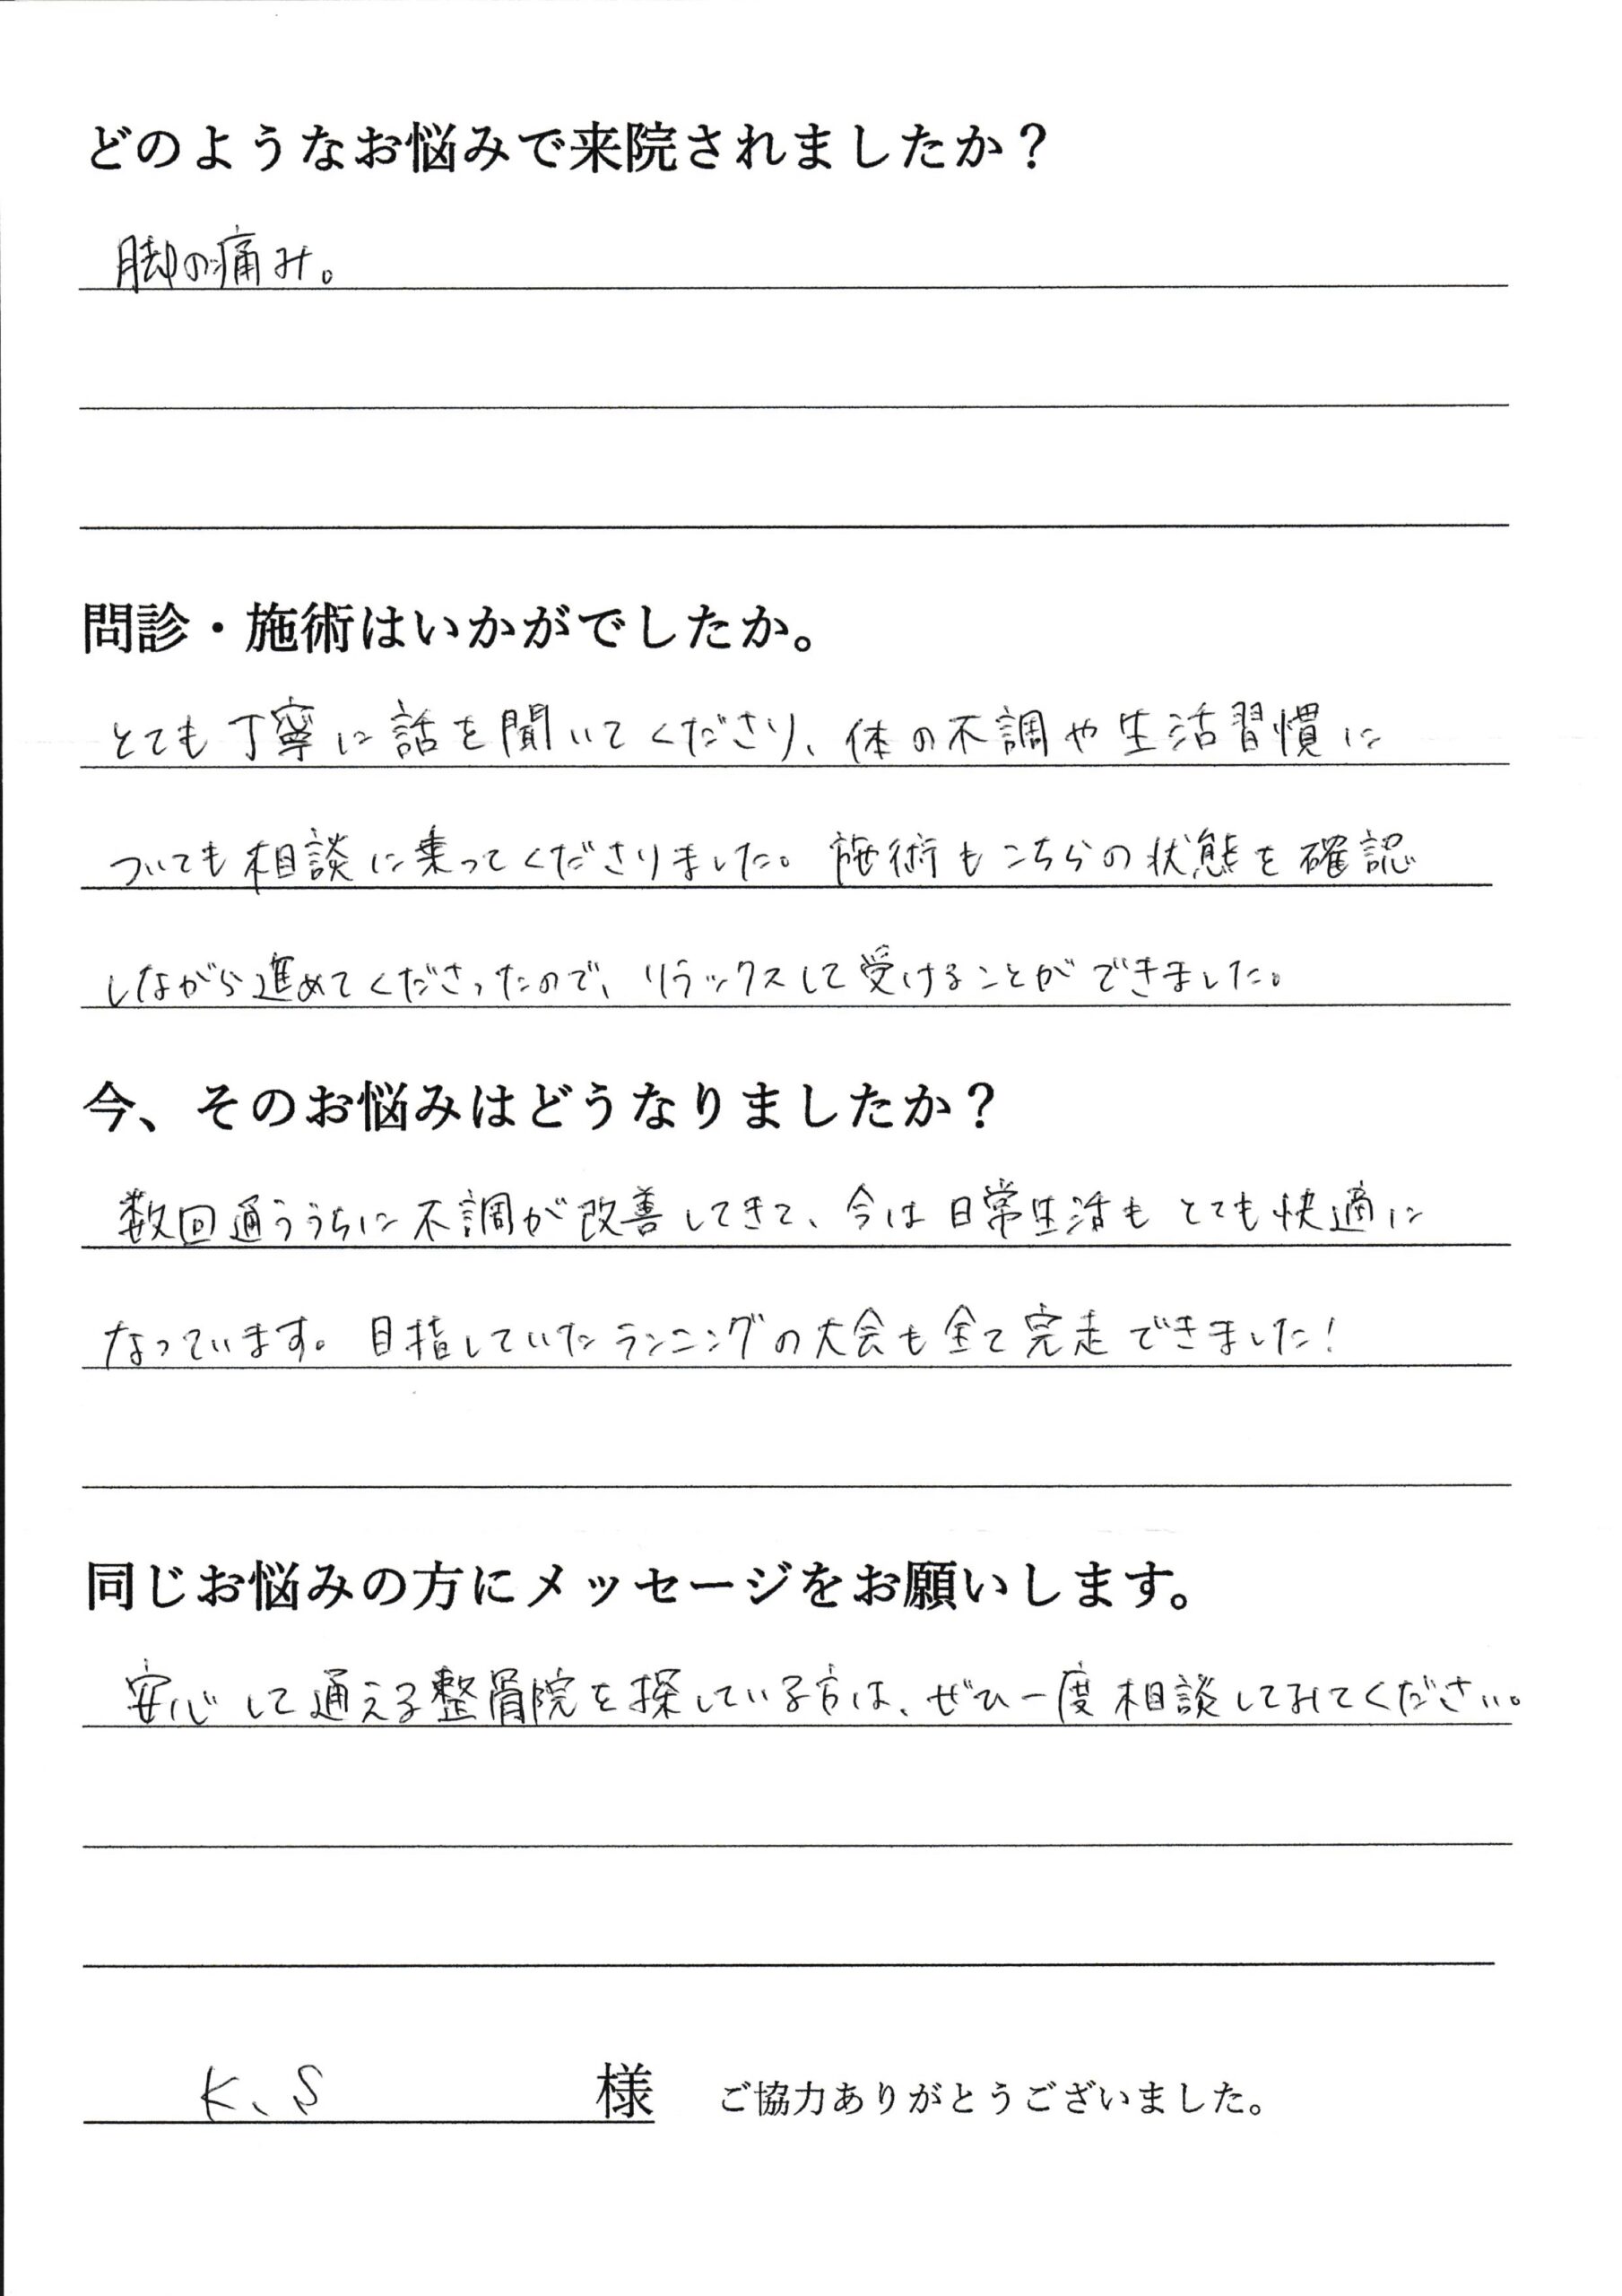 どのようなお悩みで来院されましたか？
脚の痛み。
問診・施術はいかがでしたか。
とても丁寧に話を聞いてくださり、体の不調や生活習慣に
ついても相談に乗ってくださりました。施術もこちらの状態を確認
しながら進めてくださったので、リラックスして受けることができました。
今、そのお悩みはどうなりましたか？
数回通ううちに不調が改善してきて、今は日常生活もとても快適に
なっています。目指していたランニングの大会も全て完走できました！
同じお悩みの方にメッセージをお願いします。
安心して通える整骨院を探している方は、ぜひ一度相談してみてください。
K、S 様 ご協力ありがとうございました。